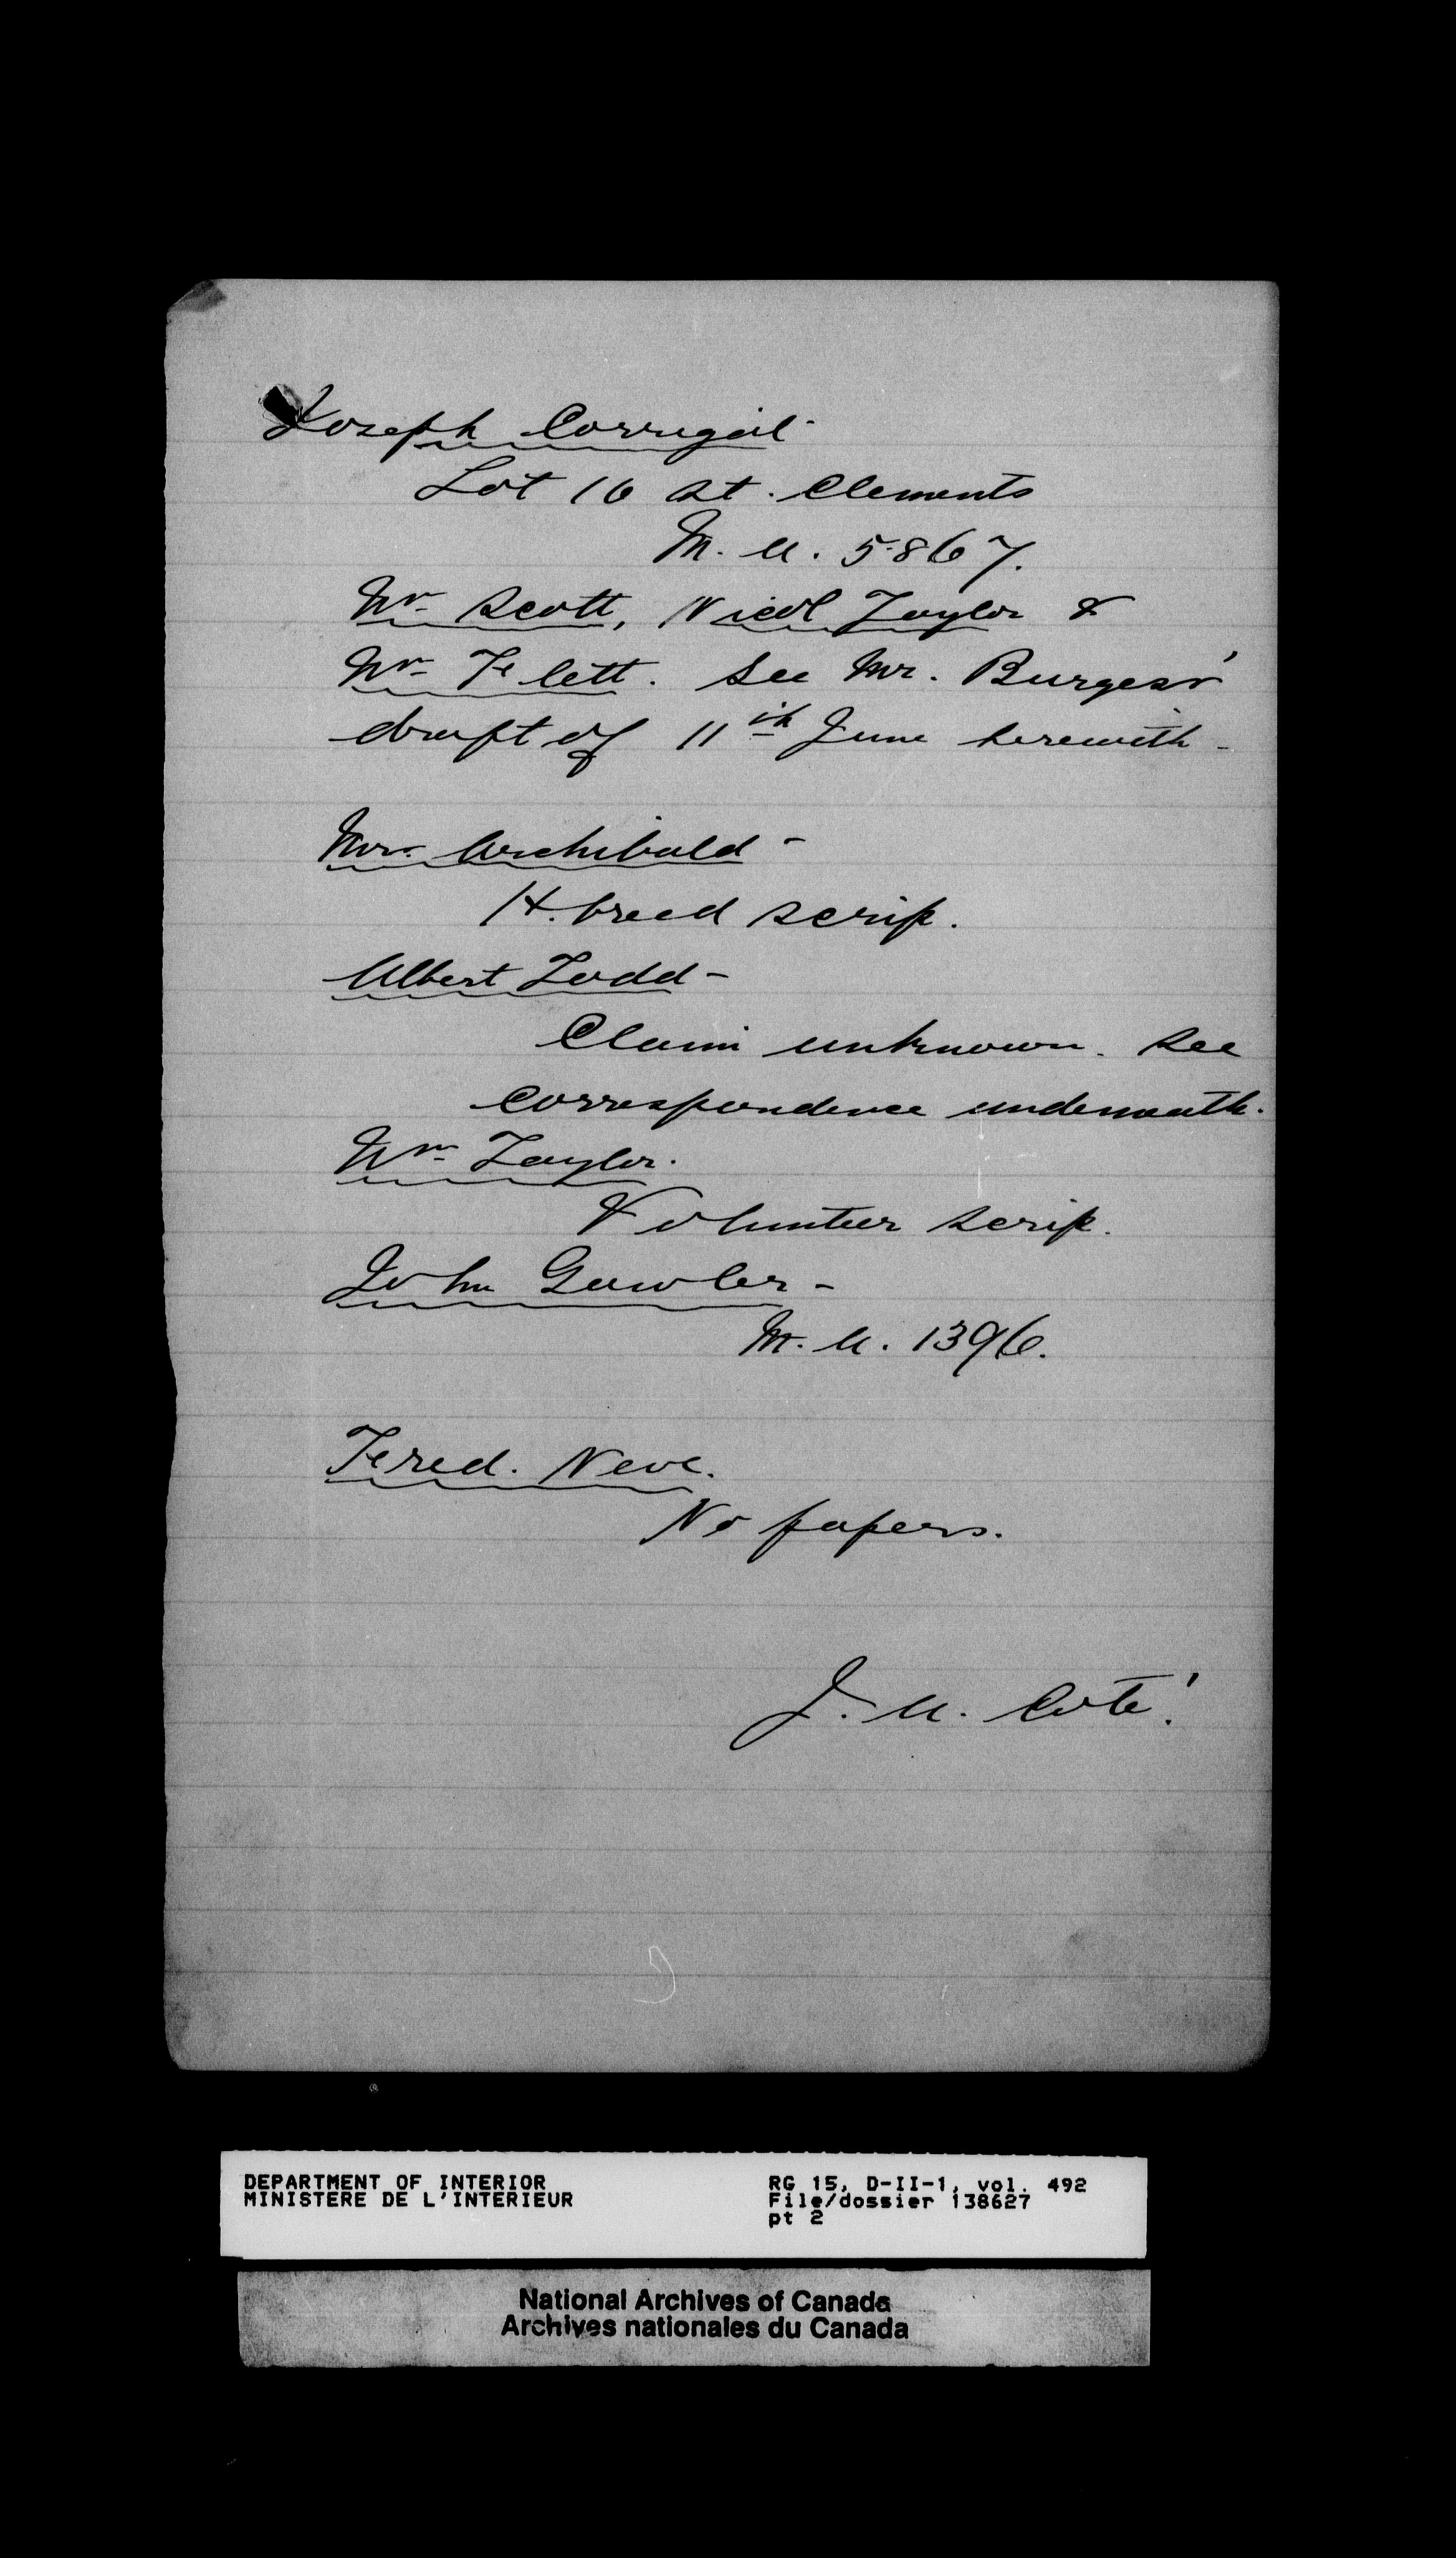 Joseph Corrigal -
Lot 16 St. Clements
M. A. 5867.
Wm Scott, Nicol Taylor &
Wm Flett. See Mr. Burgess'
draft of 11th June herewith -
Mr. Archibald -
H. breed scrip.
Albert Todd -
Claim unknown. See
correspondence underneath.
Wm Taylor.
Volunteer scrip.
John Gowler -
M. A. 1396.
Fred. Neve.
No papers.
J. A. Coté.
DEPARTMENT OF INTERIOR
MINISTERE DE L'INTERIEUR
RG 15, D-II-1, vol. 492
File/dossier 138627
pt 2
National Archives of Canada
Archives nationales du Canada